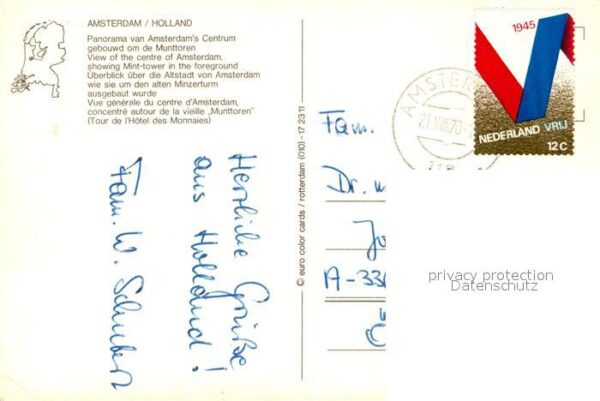 AMSTERDAM / HOLLAND
Panorama van Amsterdam's Centrum
gebouwd om de Munttoren
View of the centre of Amsterdam,
showing Mint-tower in the foreground
Überblick über die Altstadt von Amsterdam
wie sie um den alten Minzerturm
ausgebaut wurde
Vue générale du centre d'Amsterdam,
concentré autour de la vieille „Munttoren"
(Tour de l'Hôtel des Monnaies)
Herzliche Grüße
aus Holland!
Fam. W. Schubert
© euro color cards / rotterdam (010) - 17 23 11
1945
NEDERLAND VRIJ
12 C
AMSTER
21.VIII.70
Fam.
Dr.
A-33
privacy protection
Datenschutz